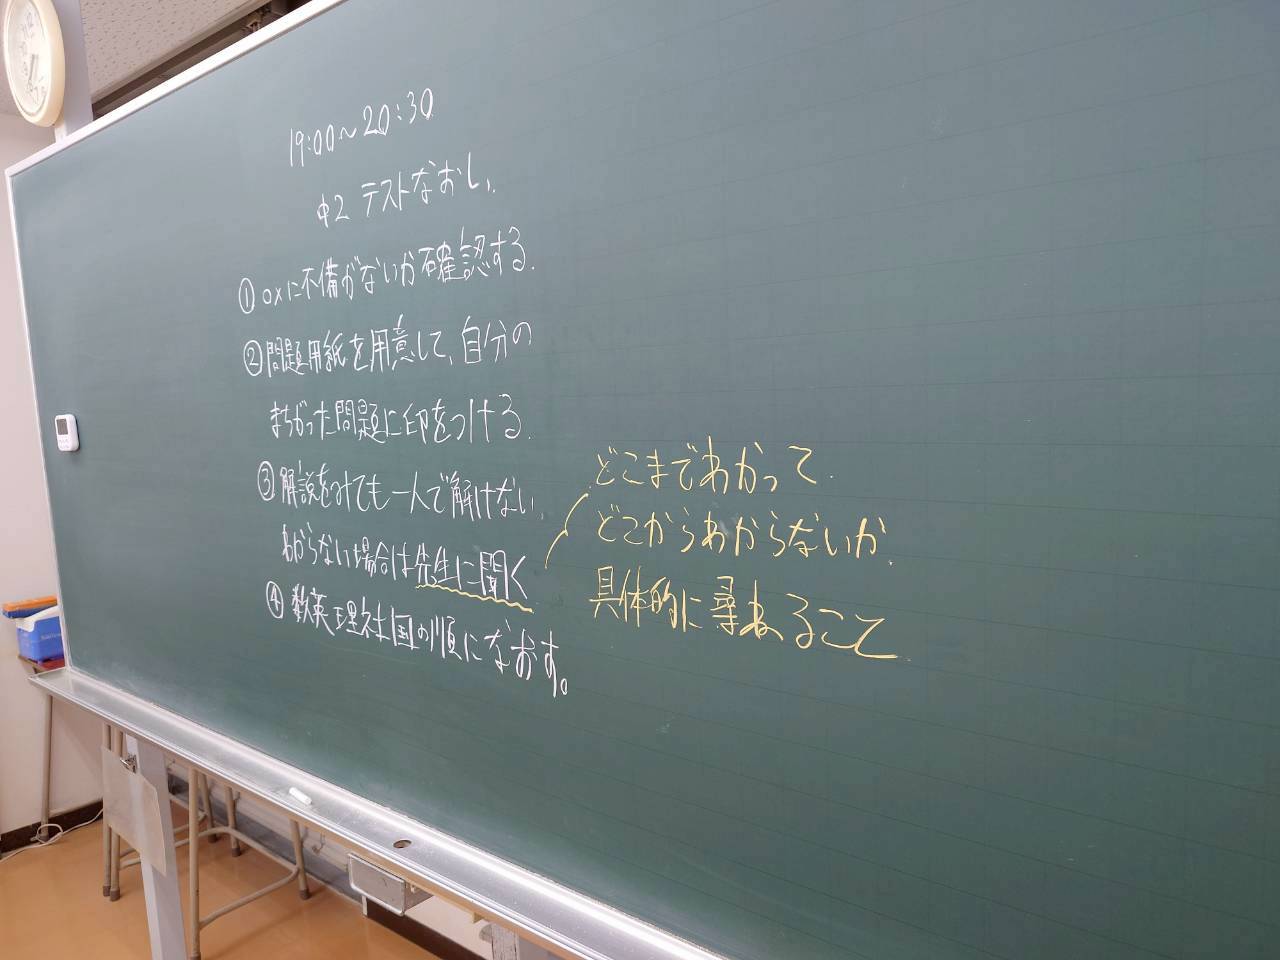 19:00~20:30
中2 テストなおし
① ○×に不備がないか確認する.
② 問題用紙を用意して、自分の
まちがった問題に印をつける.
③ 解説をみても一人で解けない、
わからない場合は先生に聞く
④ 数英理社国の順になおす。
どこまでわかって.
どこからわからないか.
具体的に尋ねること